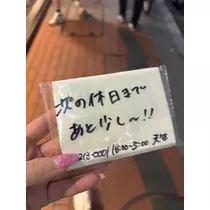 次の休日まで
あと少し〜!!
213-0001 18:00-5:00